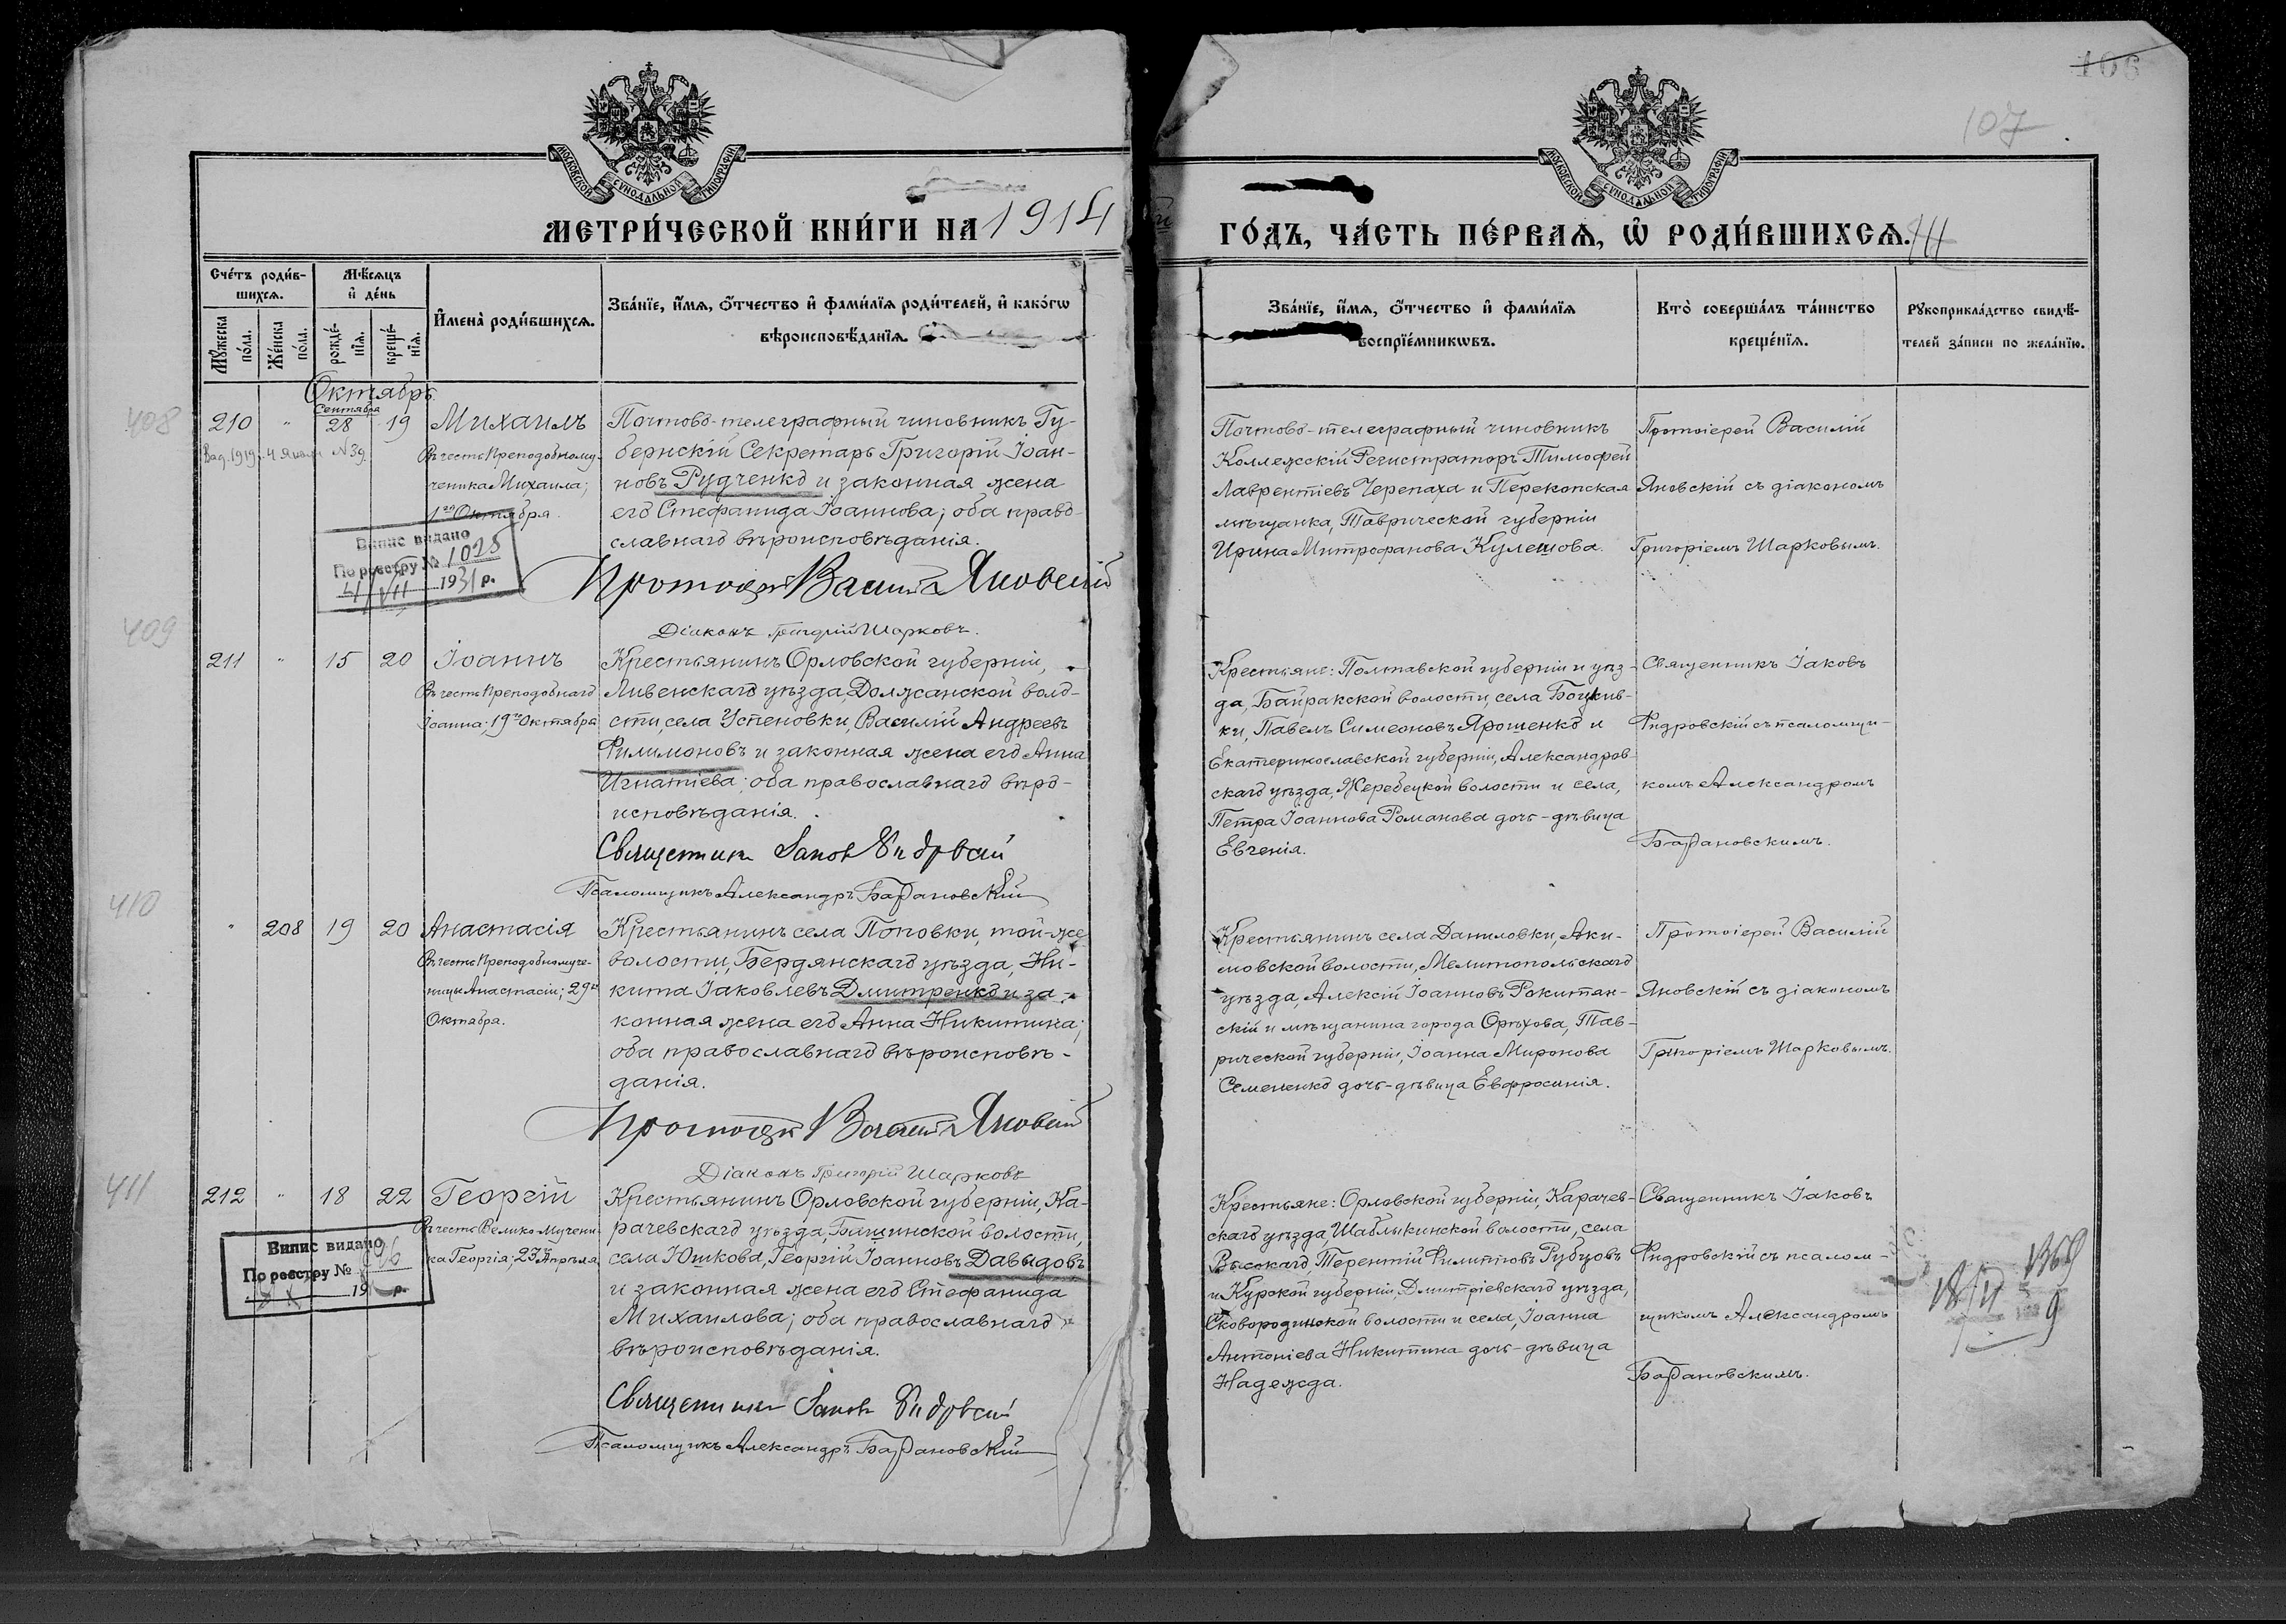 106
107
МОСКОВСКОЙ СѴНОДАЛЬНОЙ ТИПОГРАФІИ
МОСКОВСКОЙ СѴНОДАЛЬНОЙ ТИПОГРАФІИ
МЕТРИ́ЧЕСКОЙ КНИ́ГИ НА 1914
ГО́ДЪ, ЧА́СТЬ ПЕ́РВАѦ, Ѽ РОДИ́ВШИХСѦ.
Сче́тъ роди́в-
шихсѧ.
Мꙋ́жеска по́ла.
Же́нска по́ла.
Мѣ́сѧцъ
и҆ де́нь
рожде́-
нїѧ.
креще́-
нїѧ.
И҆мена̀ роди́вшихсѧ.
Зва́нїе, и҆́мѧ, ѻ҆́тчество и҆ фами́лїѧ роди́телей, и҆ како́гѡ
вѣроисповѣ́данїѧ.
Зва́нїе, и҆́мѧ, ѻ҆́тчество и҆ фами́лїѧ
воспрїе́мникѡвъ.
Кто̀ соверша́лъ та́инство
креще́нїѧ.
Рꙋкоприкла́дство свидѣ́-
телей за́писи по жела́нїю.
Октябрь
408
210 " Сентября 28 19
Михаилъ
Въ честь Преподобному-
ченика Михаила;
1го Октября.
Почтово-телеграфный чиновникъ Гу-
бернскій Секретарь Григорій Іоан-
новъ Рудченко и законная жена
его Стефанида Іоаннова; оба право-
славнаго вѣроисповѣданія.
Протоіерей Василій Яновскій
Діаконъ Григорій Шарковъ.
Почтово-телеграфный чиновникъ
Коллежскій Регистраторъ Тимофей
Лаврентіевъ Черепаха и Перекопская
мѣщанка, Таврической губерніи
Ирина Митрофанова Кулешова.
Протоіерей Василій
Яновскій съ діакономъ
Григоріемъ Шарковымъ.
Випис видано
По реєстру № 1025
4/VII 1931 р.
409
211 " 15 20
Іоаннъ
Въ честь Преподобнаго
Іоанна; 19го Октября
Крестьянинъ Орловской губерніи,
Ливенскаго уѣзда, Должанской воло-
сти, села Успеновки, Василій Андреевъ
Филимоновъ и законная жена его Анна
Игнатіева; оба православнаго вѣро-
исповѣданія.
Священникъ Іаковъ Фидровскій
Псаломщикъ Александръ Барановскій
Крестьяне: Полтавской губерніи и уѣз-
да, Байракской волости, села Боцкив-
ки, Павелъ Симеоновъ Ярошенко и
Екатеринославской губерніи, Александров-
скаго уѣзда, Жеребецкой волости и села,
Петра Іоаннова Романова дочь-дѣвица
Евгенія.
Священникъ Іаковъ
Фидровскій съ псаломщи-
комъ Александромъ
Барановскимъ.
410
" 208 19 20
Анастасія
Въ честь Преподобномуче-
ницы Анастасіи; 29го
Октября.
Крестьянинъ села Поповки, той-же
волости, Бердянскаго уѣзда, Ни-
кита Іаковлевъ Дмитренко и за-
конная жена его Анна Никитина;
оба православнаго вѣроисповѣ-
данія.
Протоіерей Василій Яновскій
Діаконъ Григорій Шарковъ
Крестьянинъ села Даниловки, Аки-
мовской волости, Мелитопольскаго
уѣзда, Алексій Іоанновъ Рокитян-
скій и мѣщанина города Орѣхова, Тав-
рической губерніи, Іоанна Миронова
Семененко дочь-дѣвица Евфросинія.
Протоіерей Василій
Яновскій съ діакономъ
Григоріемъ Шарковымъ.
411
212 " 18 22
Георгій
Въ честь Великомучени-
ка Георгія; 23го Апрѣля
Крестьянинъ Орловской губерніи, Ка-
рачевскаго уѣзда, Бошинской волости,
села Юшкова, Георгій Іоанновъ Давыдовъ
и законная жена его Стефанида
Михаилова; оба православнаго
вѣроисповѣданія.
Священникъ Іаковъ Фидровскій
Псаломщикъ Александръ Барановскій
Крестьяне: Орловской губерніи, Карачев-
скаго уѣзда, Шаблыкинской волости, села
Высокаго, Терентій Филипповъ Рубцовъ
и Курской губерніи, Дмитріевскаго уѣзда,
Сковородинской волости и села, Іоанна
Антоніева Никитина дочь-дѣвица
Надежда.
Священникъ Іаковъ
Фидровскій съ псалом-
щикомъ Александромъ
Барановскимъ.
Випис видано
По реєстру №
19 р.